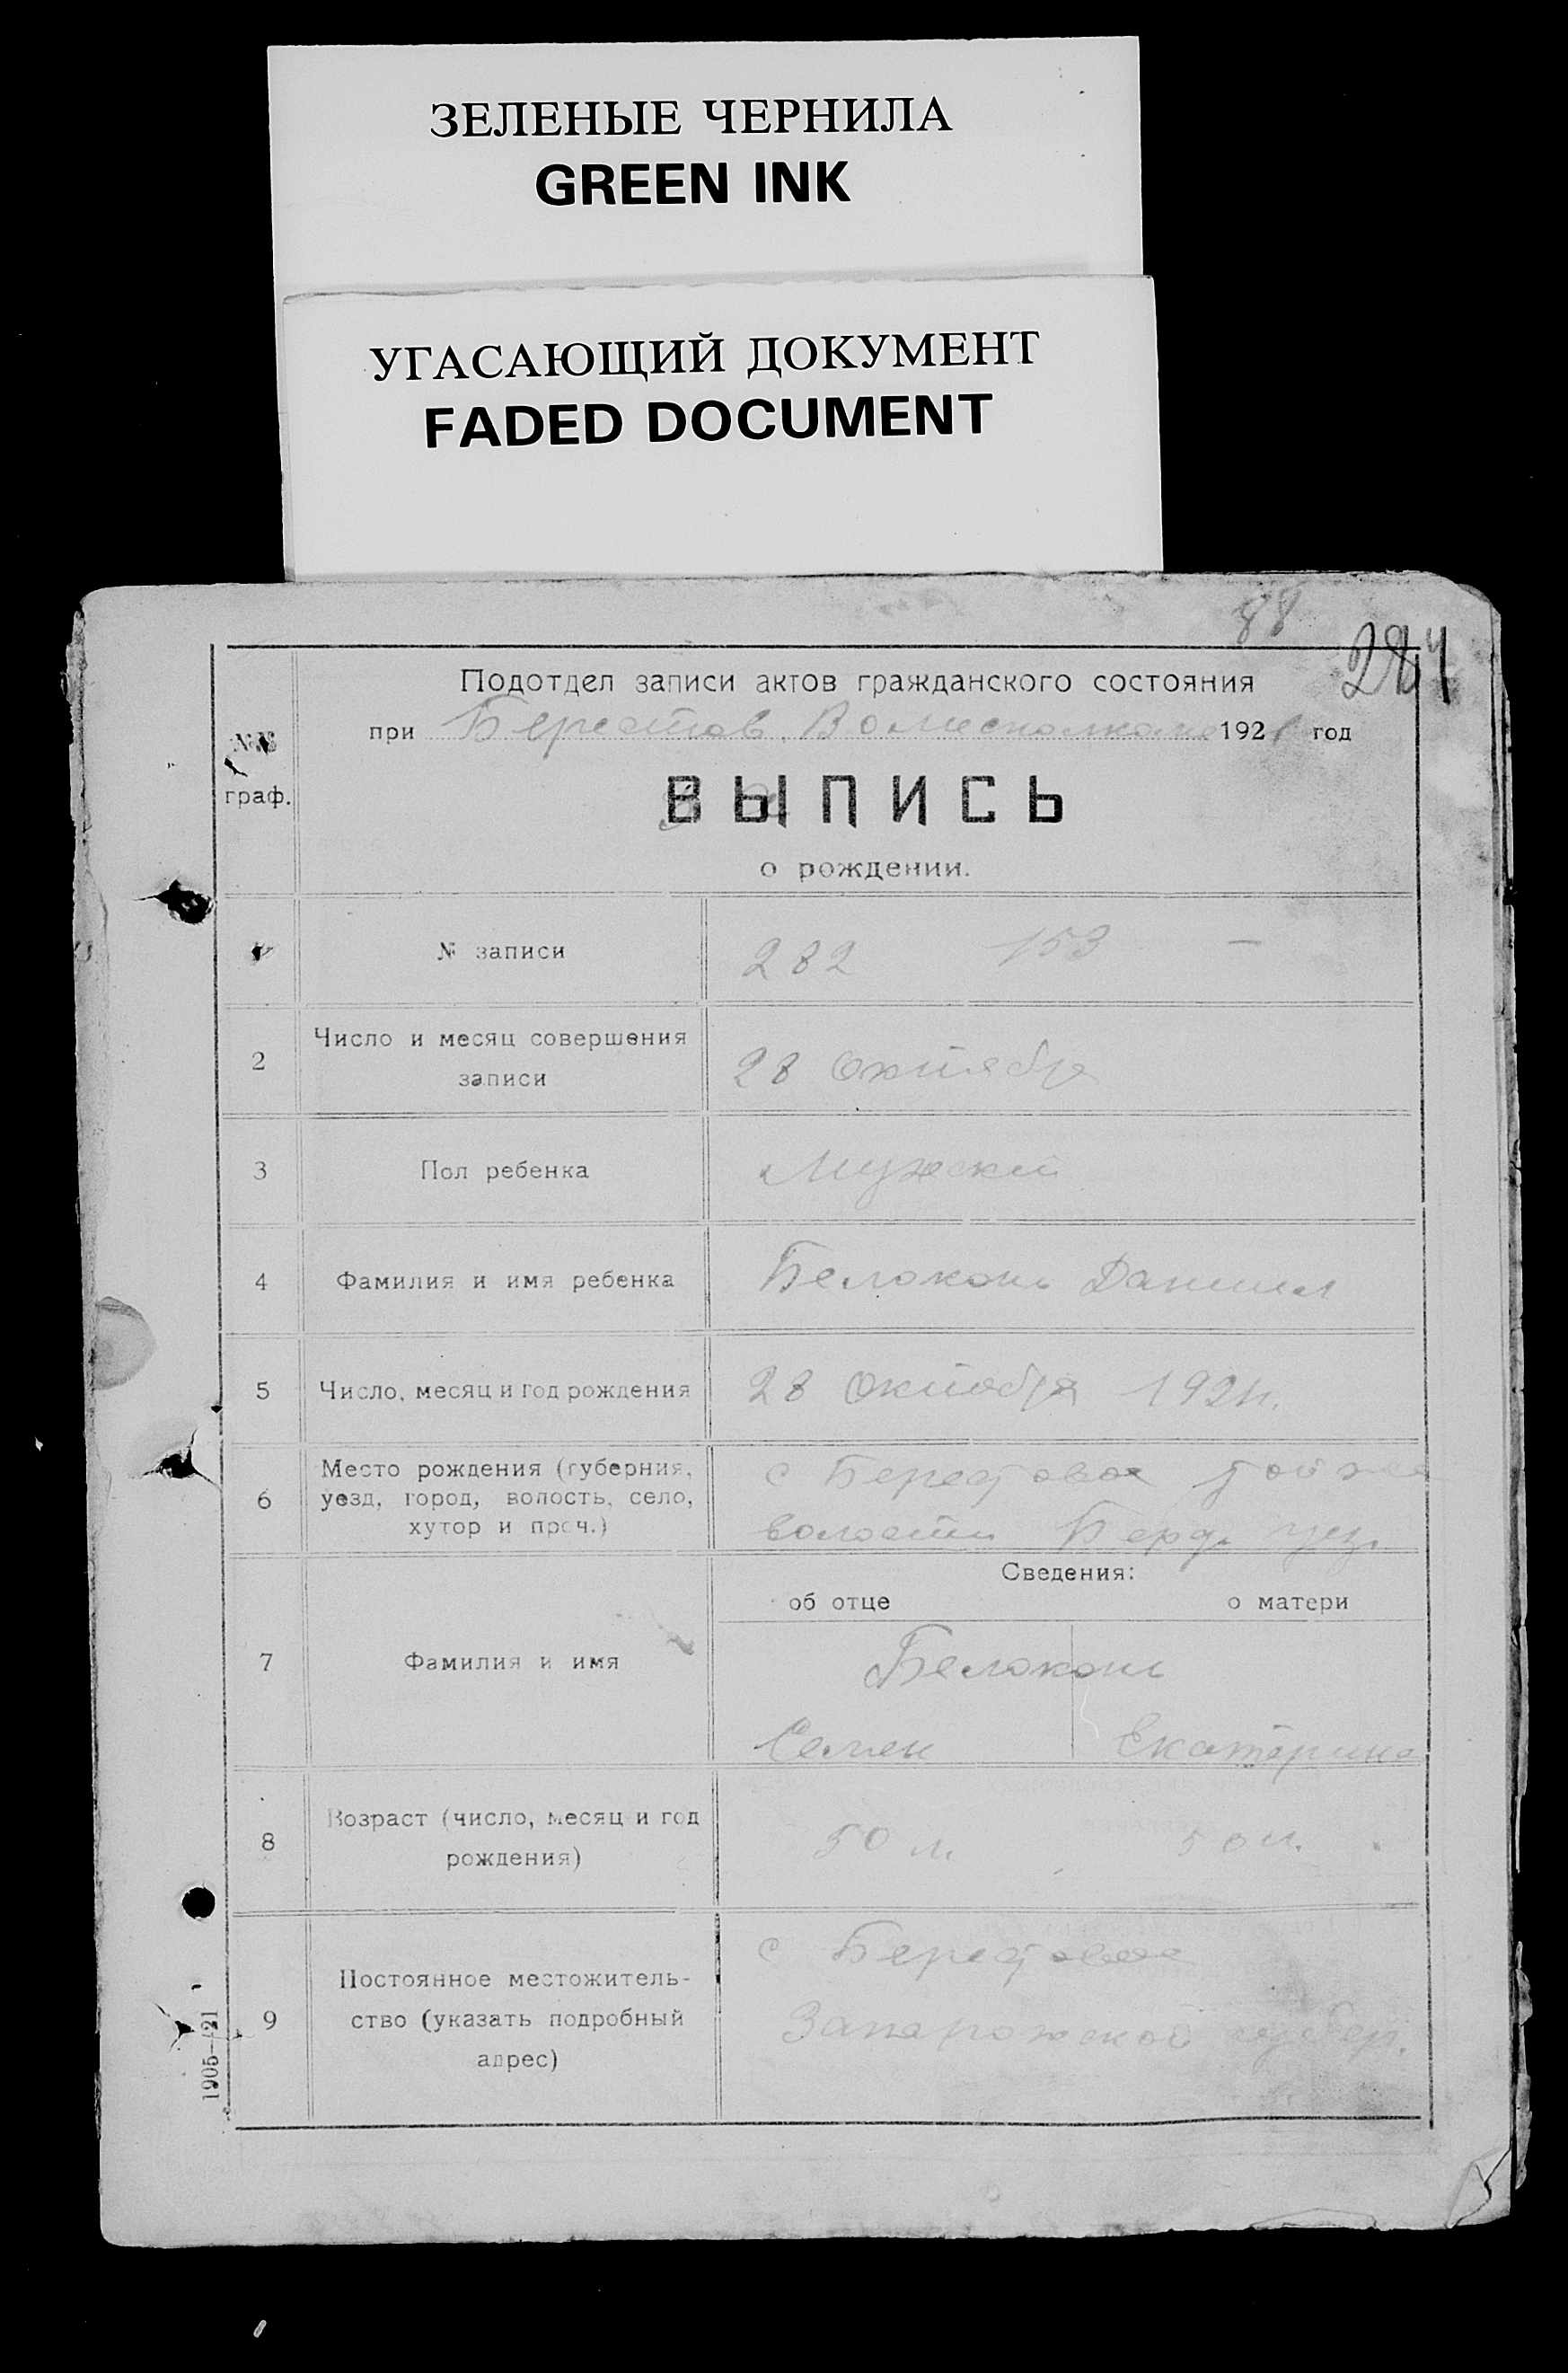 ЗЕЛЕНЫЕ ЧЕРНИЛА
GREEN INK
УГАСАЮЩИЙ ДОКУМЕНТ
FADED DOCUMENT
88
284
Подотдел записи актов гражданского состояния
при Берестов. 1921 год
№№
граф.
ВЫПИСЬ
о рождении.
1 № записи 282 153 —
2 Число и месяц совершения
записи
28 Октября
3 Пол ребенка
4 Фамилия и имя ребенка Белоконь Даниил
5 Число, месяц и год рождения 28 Октября 1921 г.
6 Место рождения (губерния,
уезд, город, волость, село,
хутор и проч.)
с Берестовое той же
волости Берд. уез.
Сведения:
об отце о матери
7 Фамилия и имя
Белоконь
Семен Екатерина
8 Возраст (число, месяц и год
рождения)
50 л. 50 л.
9 Постоянное местожитель-
ство (указать подробный
адрес)
с Берестовое
Запорожской губер.
1905—21